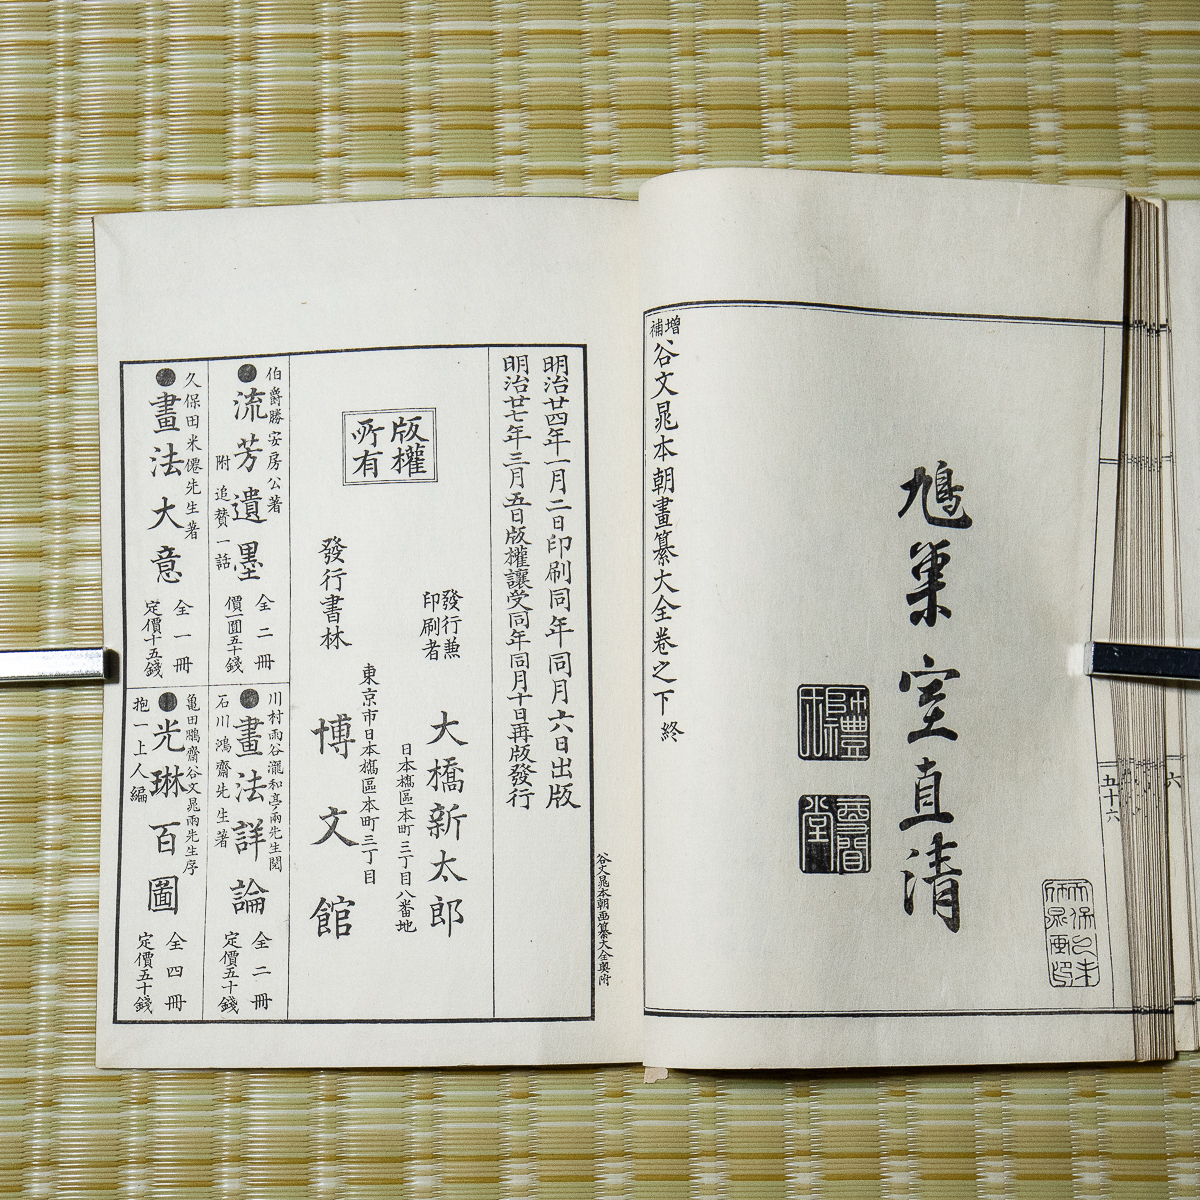 六
五十六
鳩巢室直清
增補谷文晁本朝畫纂大全卷之下終
谷文晁本朝画纂大全奥附
明治廿四年一月二日印刷同年同月六日出版
明治廿七年三月五日版權讓受同年同月十日再版發行
版權所有
發行兼印刷者
大橋新太郎
日本橋區本町三丁目八番地
東京市日本橋區本町三丁目
發行書林
博文館
伯爵勝安房公著
●流芳遺墨
附追贊一話
全二冊
價圓五十錢
久保田米僊先生著
●畫法大意
全一冊
定價十五錢
川村雨谷瀧和亭兩先生閲
石川鴻齋先生著
●畫法詳論
全二冊
定價五十錢
亀田鵬齋谷文晁兩先生序
●光琳百圖
抱一上人編
全四冊
定價五十錢